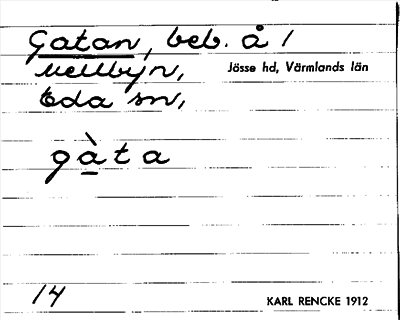 Gatan, beb. å 1
Mellbyn, Jösse hd, Värmlands län
Eda sn,
gàta
14 KARL RENCKE 1912